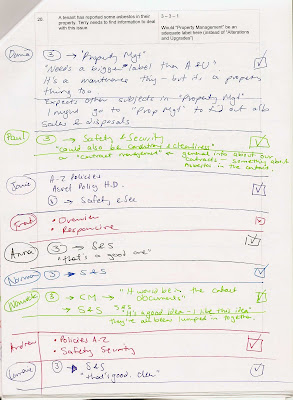 20.
A tenant has reported some asbestos in their
property. Terry needs to find information to deal
with this issue
3 – 3 – 1
Would "Property Management" be an
adequate label here (instead of "Alterations
and Upgrades")
3 → "Property Mgt"
"Needs a bigger label than A + U"
It's a maintenance thing – but its a property
thing too.
Expects other subjects in "Property Mgt"
I might go to "Prop Mgt" to find out a/b
Sales & disposals
Paul
3 → Safety & Security
"could also be conditions & cleanliness"
or "contract management" ← general info about our
contracts – something about
asbestos in the contracts
A-Z Policies
Asset Policy H.D.
→ Safety & Sec
• Overview
• Responsive
Anna
3 → S&S
"that's a good one"
Norman
3 → S&S
3 → CM → "It would be in the contract
documents"
→ S&S
S&S "It's a good idea – I like this idea
they've all been lumped in together.
Andrew
• Policies A-Z
• Safety Security
3 → S&S
"that's good. clear"